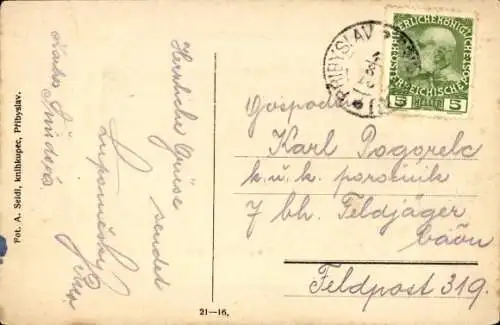 Pot. A. Seidl, knihkupec, Přibyslav.
Herzliche Grüsse
sendet
21—16.
PŘIBYSLAV
KAISERLICHE KÖNIGLICHE
ÖSTERREICHISCHE
5 HELLER 5
Gospodin
Karl Pogorelc
k.u.k. poročnik
7 bh. Feldjäger
baõn
Feldpost 319.